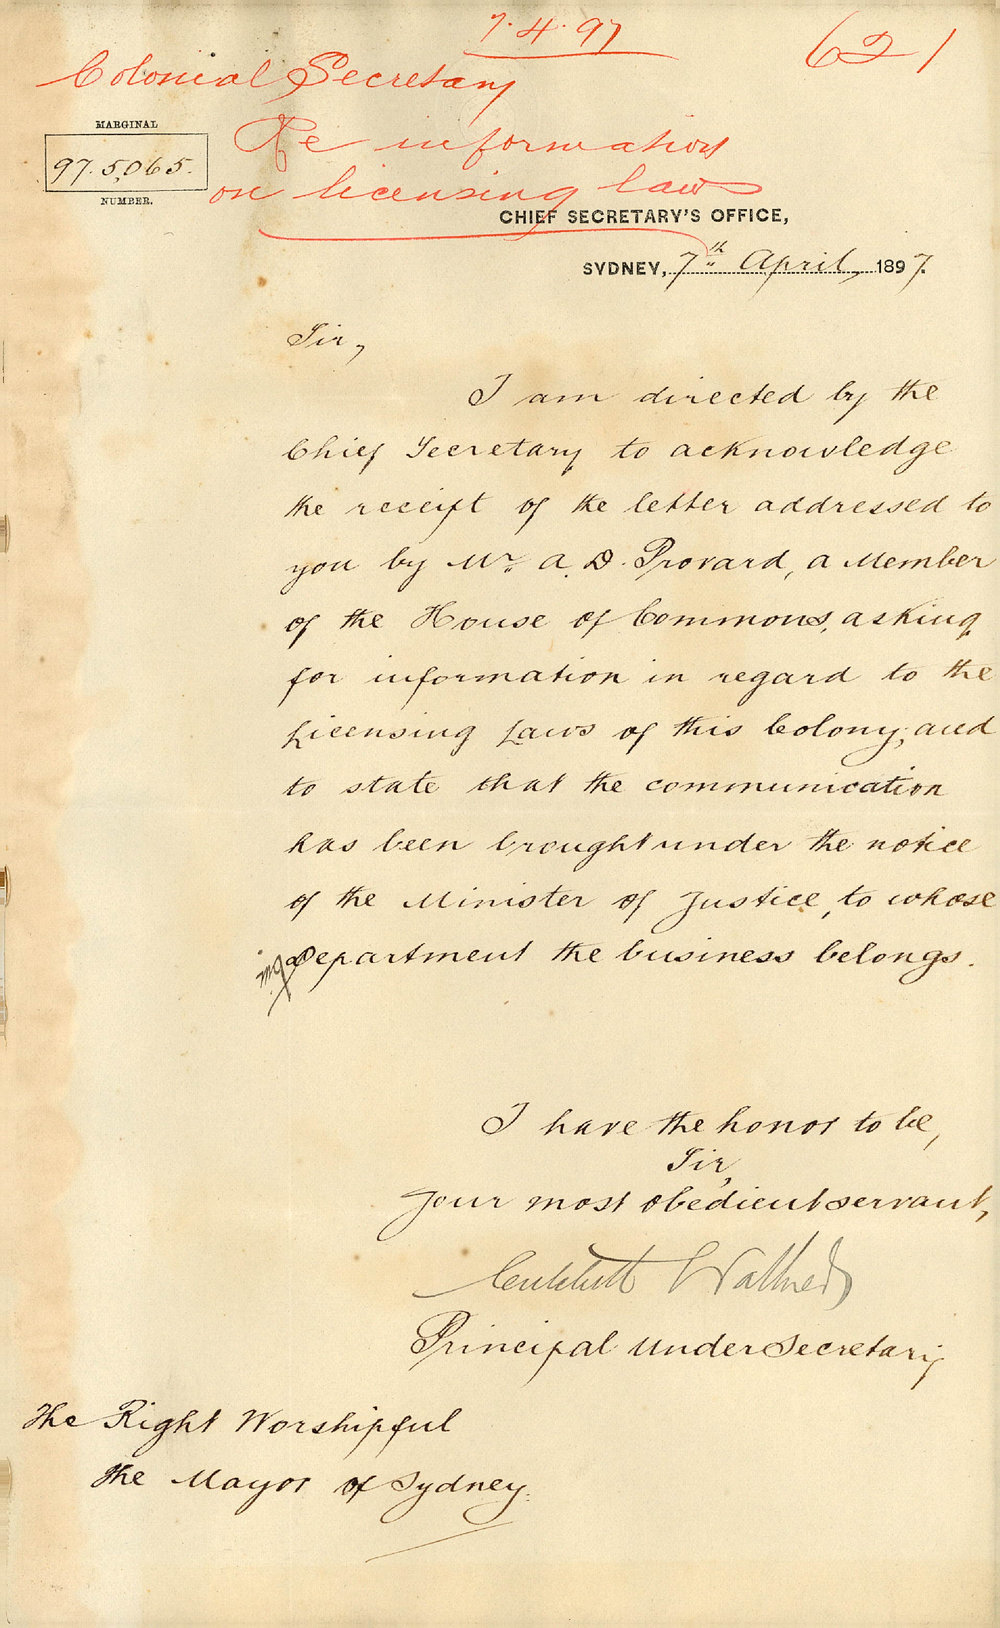 7.4.97
621
Colonial Secretary
Re information
on licensing laws
MARGINAL
97.5,065.
NUMBER.
CHIEF SECRETARY'S OFFICE,
SYDNEY, 7th April, 1897.
Sir,
I am directed by the
Chief Secretary to acknowledge
the receipt of the letter addressed to
you by Mr. A. D. Provand, a Member
of the House of Commons, asking
for information in regard to the
Licensing Laws of this Colony, and
to state that the communication
has been brought under the notice
of the Minister of Justice, to whose
Department the business belongs.
I have the honor to be,
Sir,
Your most obedient servant,
Critchett Walker
Principal Under Secretary
The Right Worshipful
The Mayor of Sydney.